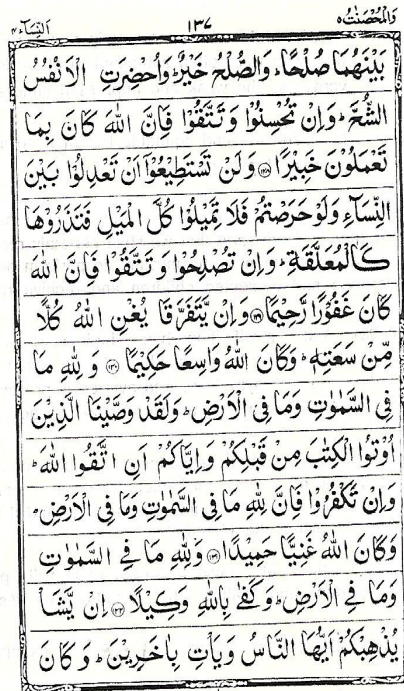 وَالْمُحْصَنٰتُ ٥ ١٣٧ اَلنِّسَآء ٤
بَيْنَهُمَا صُلْحًا ؕ وَالصُّلْحُ خَيْرٌ ؕ وَاُحْضِرَتِ الْاَنْفُسُ
الشُّحَّ ؕ وَاِنْ تُحْسِنُوْا وَ تَتَّقُوْا فَاِنَّ اللّٰهَ كَانَ بِمَا
تَعْمَلُوْنَ خَبِيْرًا ﴿١٢٨﴾ وَلَنْ تَسْتَطِيْعُوْۤا اَنْ تَعْدِلُوْا بَيْنَ
النِّسَآءِ وَلَوْ حَرَصْتُمْ فَلَا تَمِيْلُوْا كُلَّ الْمَيْلِ فَتَذَرُوْهَا
كَالْمُعَلَّقَةِ ؕ وَاِنْ تُصْلِحُوْا وَ تَتَّقُوْا فَاِنَّ اللّٰهَ
كَانَ غَفُوْرًا رَّحِيْمًا ﴿١٢٩﴾ وَاِنْ يَّتَفَرَّقَا يُغْنِ اللّٰهُ كُلًّا
مِّنْ سَعَتِهٖ ؕ وَكَانَ اللّٰهُ وَاسِعًا حَكِيْمًا ﴿١٣٠﴾ وَ لِلّٰهِ مَا
فِى السَّمٰوٰتِ وَمَا فِى الْاَرْضِ ؕ وَلَقَدْ وَصَّيْنَا الَّذِيْنَ
اُوْتُوا الْكِتٰبَ مِنْ قَبْلِكُمْ وَ اِيَّاكُمْ اَنِ اتَّقُوا اللّٰهَ ؕ
وَاِنْ تَكْفُرُوْا فَاِنَّ لِلّٰهِ مَا فِى السَّمٰوٰتِ وَمَا فِى الْاَرْضِ ؕ
وَكَانَ اللّٰهُ غَنِيًّا حَمِيْدًا ﴿١٣١﴾ وَلِلّٰهِ مَا فِى السَّمٰوٰتِ
وَمَا فِى الْاَرْضِ ؕ وَكَفٰى بِاللّٰهِ وَكِيْلًا ﴿١٣٢﴾ اِنْ يَّشَاْ
يُذْهِبْكُمْ اَيُّهَا النَّاسُ وَيَاْتِ بِاٰخَرِيْنَ ؕ وَ كَانَ